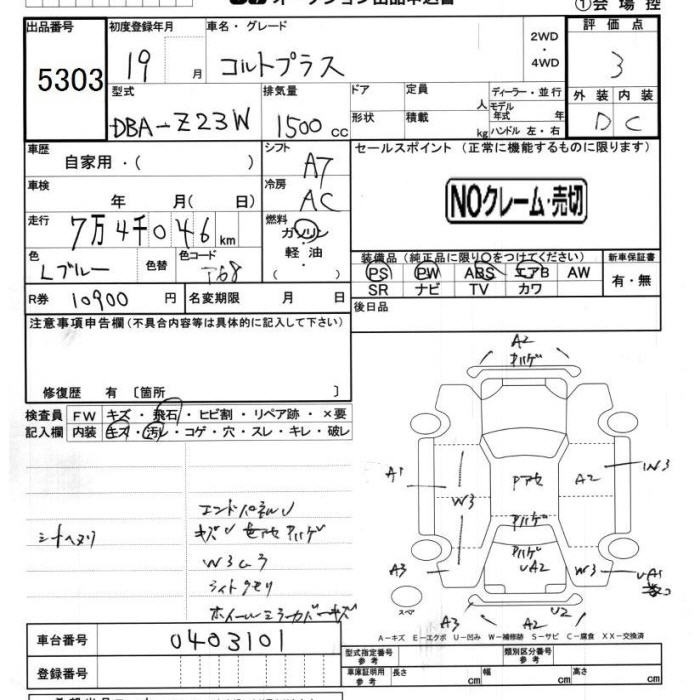 オークション出品申込書
①会場控
出品番号 初度登録年月 車名・グレード 2WD・4WD 評価点
5303 19 月 コルトプラス 3
型式 排気量 ドア 定員 人 ディーラー・並行 外装 内装
DBA-Z23W 1500 cc 形状 積載 kg モデル年式 年 ハンドル 左・右 D C
車歴 自家用・( ) シフト A7 セールスポイント (正常に機能するものに限ります)
車検 年 月( 日) 冷房 AC NOクレーム・売切
走行 7万4千046 km 燃料 ガソリン 軽・油 ( )
色 Lブルー 色替 色コード T68
装備品 (純正品に限り○をつけてください) 新車保証書
PS PW ABS エアB AW 有・無
SR ナビ TV カワ
R券 10900 円 名変期限 月 日 後日品
注意事項申告欄 (不具合内容等は具体的に記入して下さい)
修復歴 有 〔箇所 〕
検査員記入欄 FW キズ・飛石・ヒビ割・リペア跡・×要
内装 キズ・汚レ・コゲ・穴・スレ・キレ・破レ
エンドパネルU
シートヘタリ
W3ムラ
ライトクモリ
ホイールミラーカバーキズ
A2
ハゲ
A1 W3 Pアセ A2 W3
ハゲ
ハゲ
A3 UA2 W3 UA1
スペ
A3 A2 U2
A-キズ E-エクボ U-凹み W-補修跡 S-サビ C-腐食 XX-交換済
車台番号 0403101
登録番号
型式指定番号 参考 類別区分番号 参考
車庫証明用 参考 長さ cm 幅 cm 高さ cm